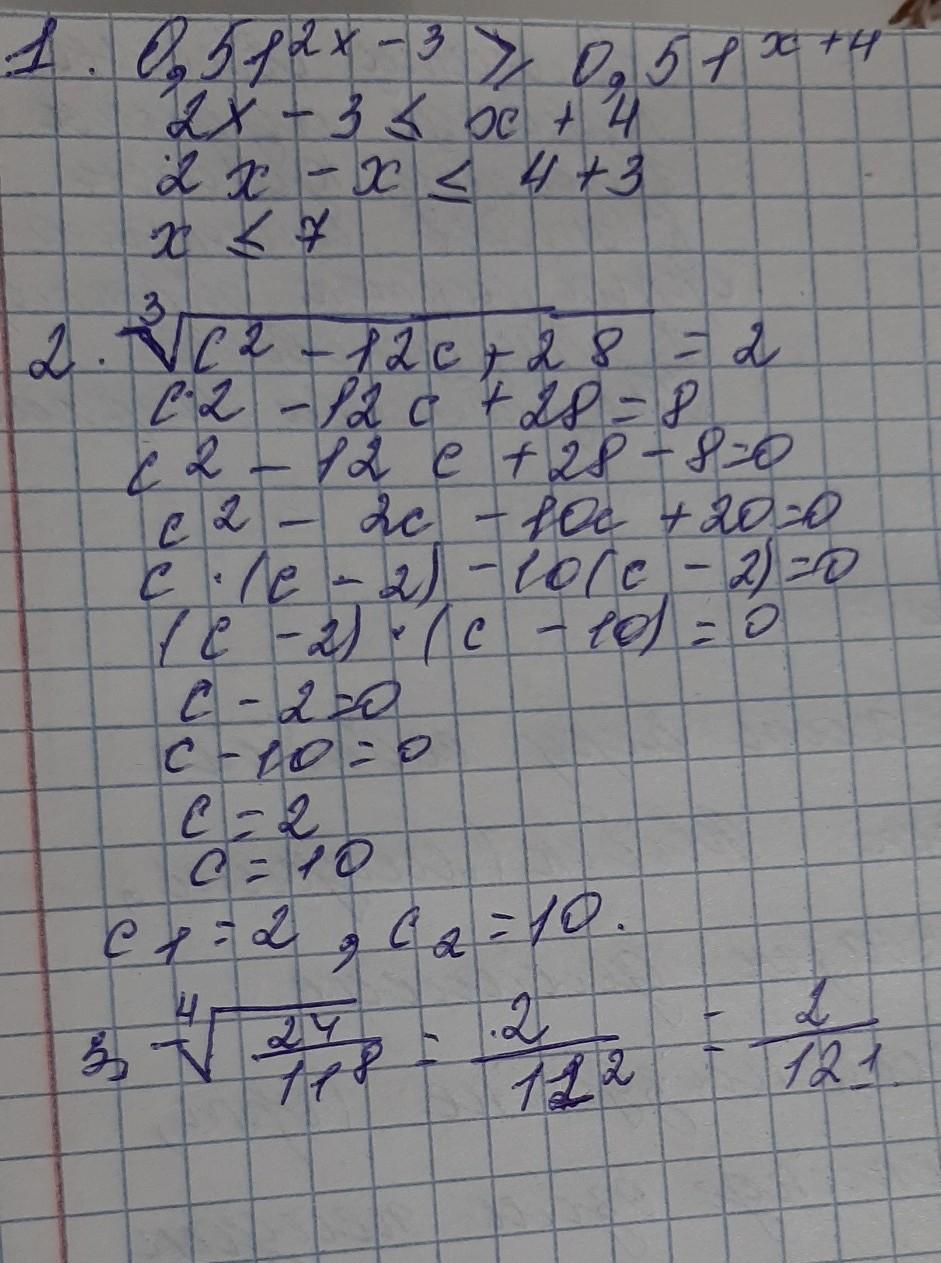 1. 0,51^{2x-3} ≥ 0,51^{x+4}
2x - 3 ≤ x + 4
2x - x ≤ 4+3
x ≤ 7
2. ∛(c² - 12c + 28) = 2
c² - 12c + 28 = 8
c² - 12c + 28 - 8=0
c² - 2c - 10c + 20=0
c · (c - 2) - 10(c - 2)=0
(c - 2) · (c - 10) = 0
c - 2=0
c - 10 = 0
c = 2
c = 10
c₁ = 2, c₂ = 10.
3, ∜(2⁴/11⁸) = 2/11² = 2/121